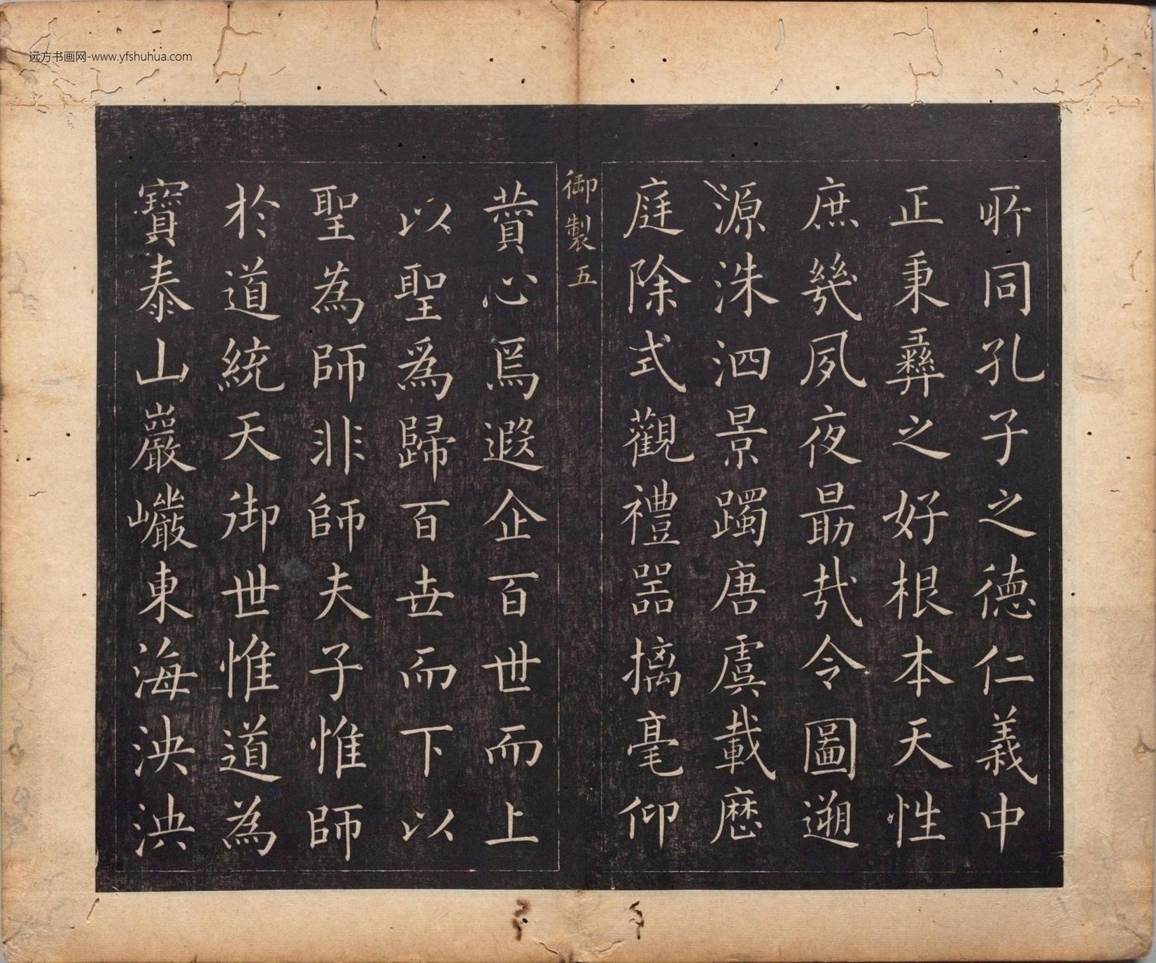 远方书画网-www.yfshuhua.com
所同孔子之德仁義中
正秉彝之好根本天性
庶幾夙夜勗哉令圖遡
源洙泗景躅唐虞載歷
庭除式觀禮器摛毫仰
御製 五
贊心焉遐企百世而上
以聖爲歸百世而下以
聖為師非師夫子惟師
於道統天御世惟道為
寶泰山巖巖東海泱泱